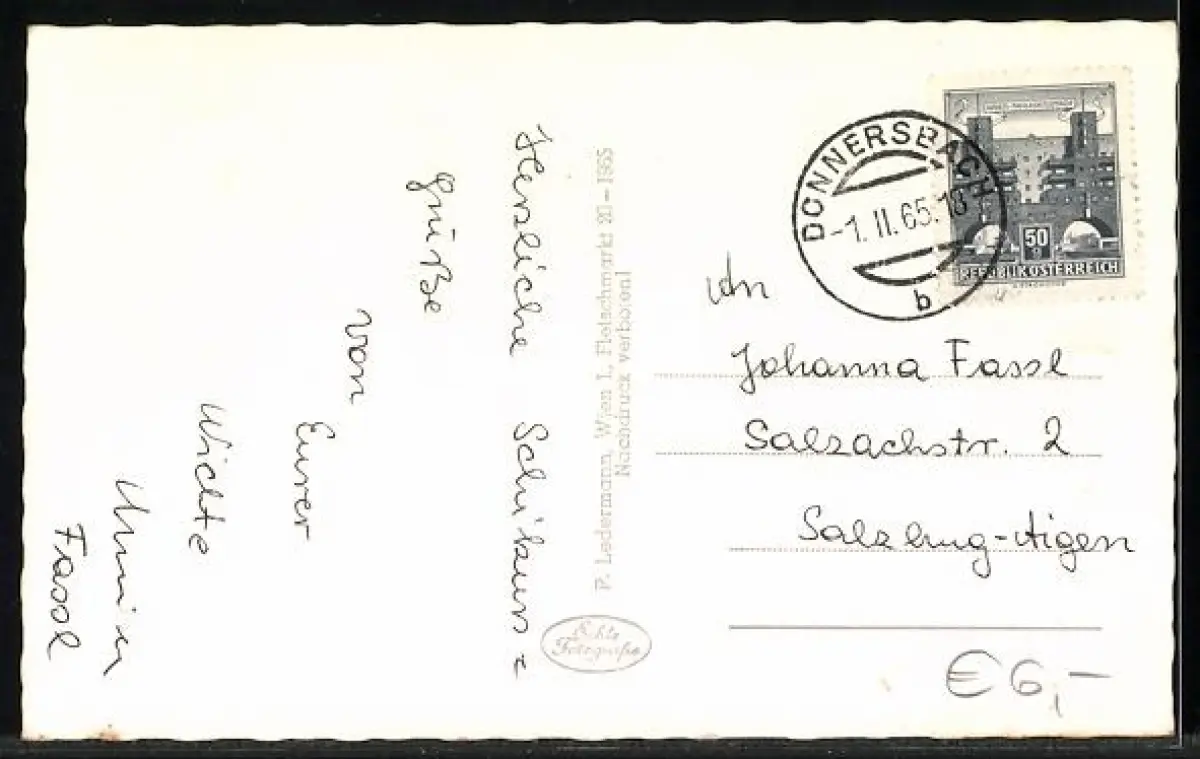 Herzliche Schikurs =
grüße
von
Eurer
Nichte
Fassl
P. Ledermann, Wien I, Fleischmarkt 20 – 1965
Nachdruck verboten!
Echte
Fotografie
DONNERSBACH
-1. II. 65. 18
b
50
REPUBLIK ÖSTERREICH
An
Johanna Fassl
Salzachstr. 2
Salzburg-Aigen
€ 6,-